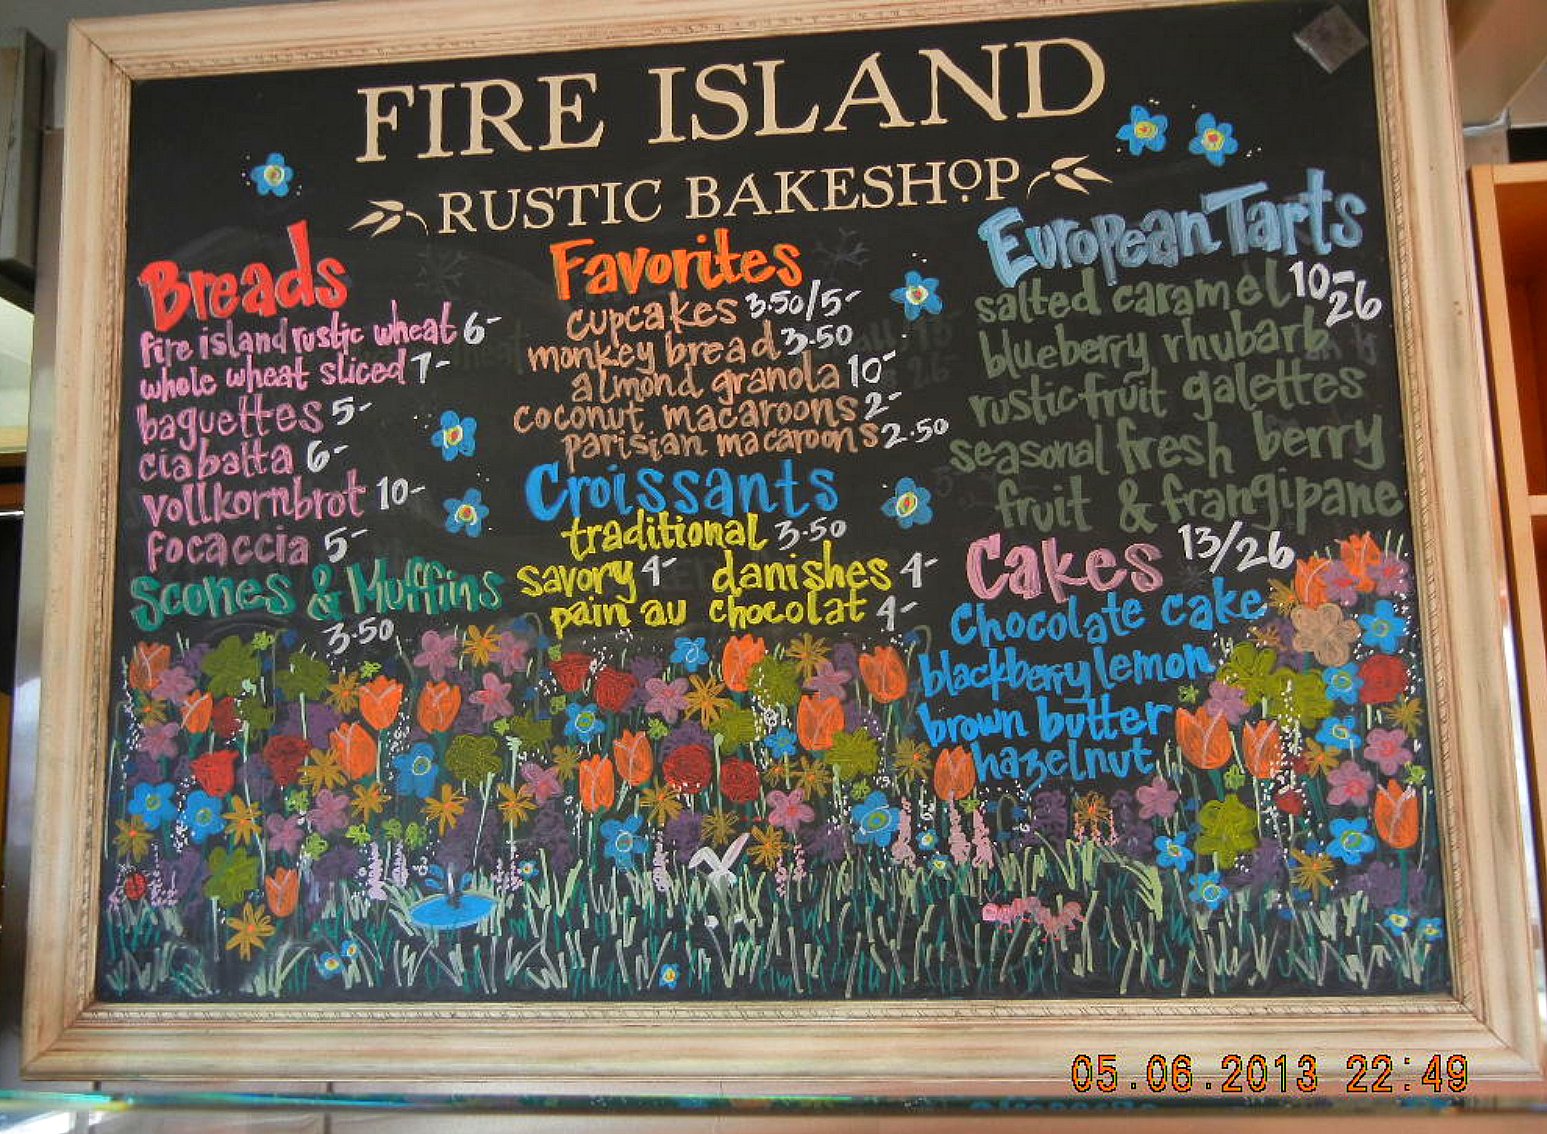 FIRE ISLAND
RUSTIC BAKESHOP
Breads
fire island rustic wheat 6-
whole wheat sliced 7-
baguettes 5-
ciabatta 6-
vollkornbrot 10-
focaccia 5-
Scones & Muffins
3.50
Favorites
cupcakes 3.50/5-
monkey bread 3.50
almond granola 10-
coconut macaroons 2-
parisian macaroons 2.50
Croissants
traditional 3.50
savory 4- danishes 4-
pain au chocolat 4-
European Tarts
salted caramel 10-
26
blueberry rhubarb
rustic fruit galettes
seasonal fresh berry
fruit & frangipane
Cakes 13/26
Chocolate cake
blackberry lemon
brown butter
hazelnut
05.06.2013 22:49